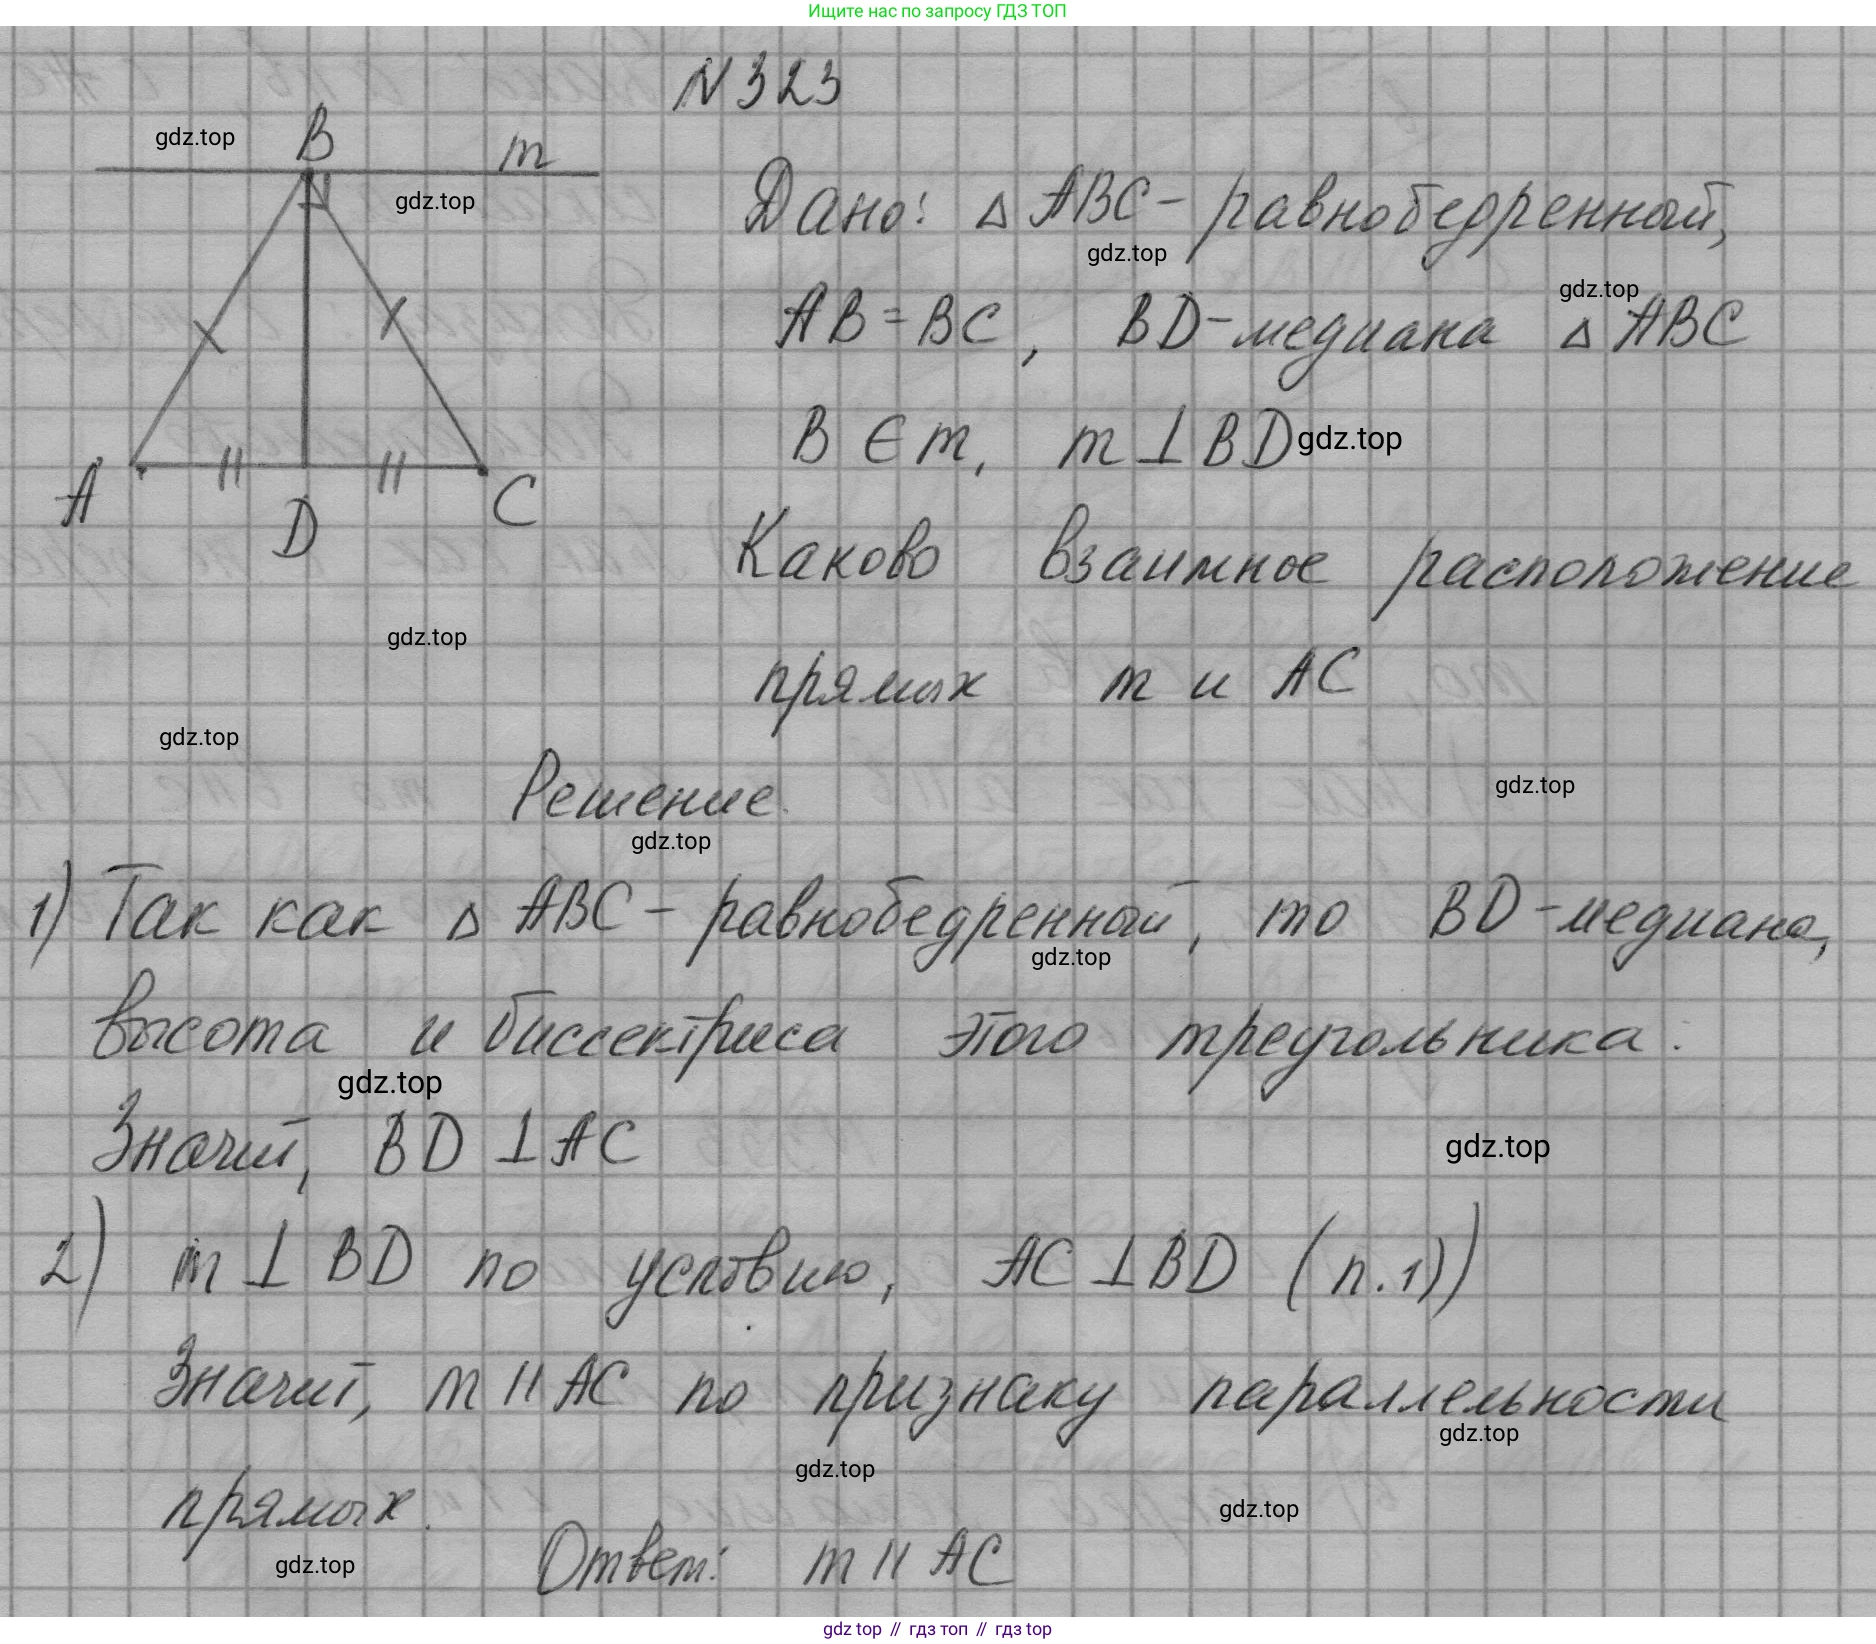 Ищите нас по запросу ГДЗ ТОП
N 323
gdz.top
B
m
gdz.top
Дано: △ ABC - равнобедренный,
gdz.top
gdz.top
AB = BC, BD - медиана △ ABC
B ∈ m, m ⊥ BD gdz.top
A
D
C
Каково взаимное расположение
gdz.top
прямых m и AC
gdz.top
Решение.
gdz.top
gdz.top
1) Так как △ ABC - равнобедренный, то BD - медиана,
gdz.top
высота и биссектриса этого треугольника.
gdz.top
Значит, BD ⊥ AC
gdz.top
2) m ⊥ BD по условию, AC ⊥ BD (п. 1))
Значит, m || AC по признаку параллельности
gdz.top
gdz.top
прямых.
gdz.top
gdz.top
Ответ: m || AC
gdz top // гдз топ // гдз top